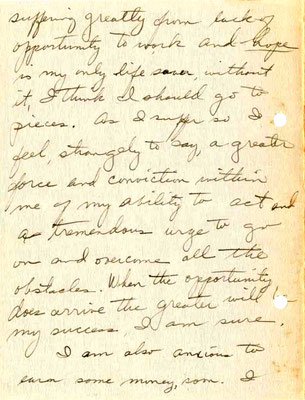 suffering greatly from lack of
opportunity to work and hope
is my only life saver, without
it, I think I should go to
pieces. As I suffer so I
feel, strangely to say, a greater
force and conviction within
me of my ability to act and
a tremendous urge to go
on and overcome all the
obstacles. When the opportunity
does arrive the greater will be
my success I am sure.
I am also anxious to
earn some money, soon. I